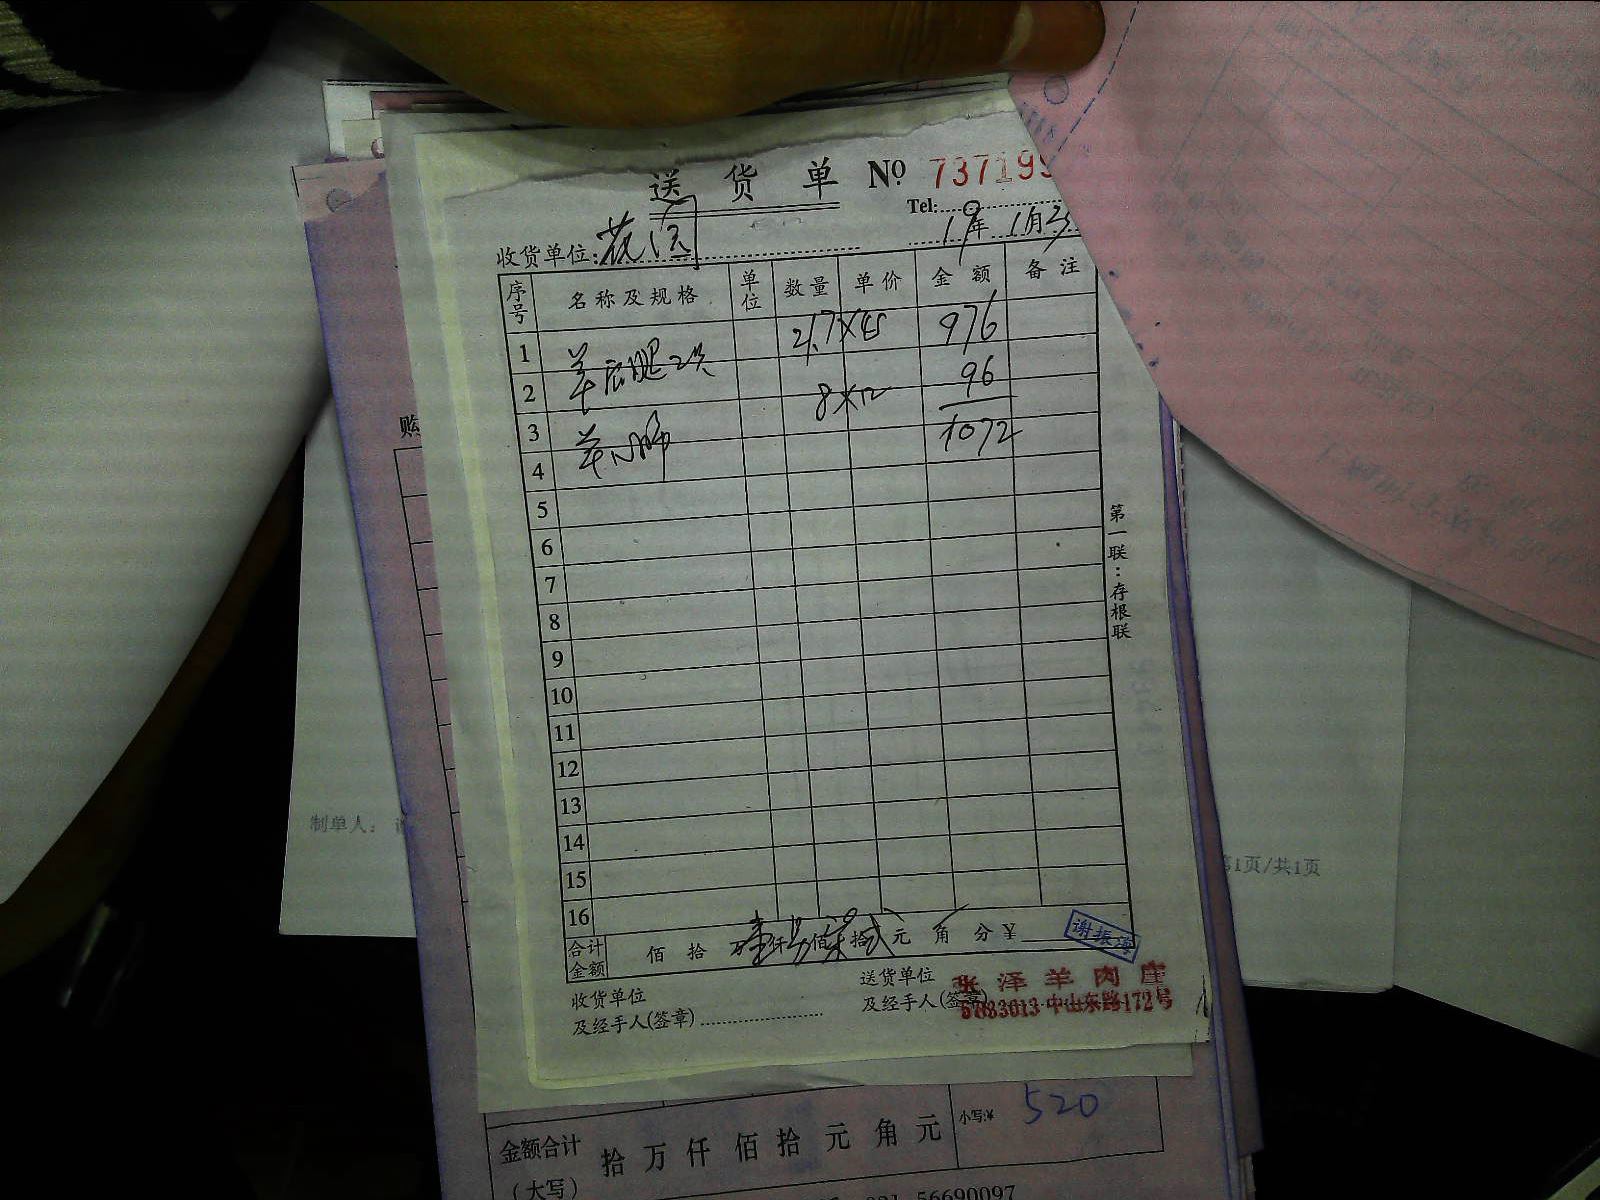 送货单 № 737199
Tel:
收货单位:花园
19年 1月
序号 名称及规格 单位 数量 单价 金额 备注
1 羊后腿2只 21.7×45 976
2 96
3 羊心肺 8×12 1072
4
5
6
7
8
9
10
11
12
13
14
15
16
合计金额 佰 拾 万壹仟另佰柒拾贰元 角 分 ¥
谢振海
收货单位
及经手人(签章)
送货单位
及经手人(签章)
张泽羊肉庄
57883013 中山东路172号
第一联:存根联
购
制单人:
第1页/共1页
金额合计 拾 万 仟 佰 拾 元 角 元 小写:¥ 520
(大写)
56690097